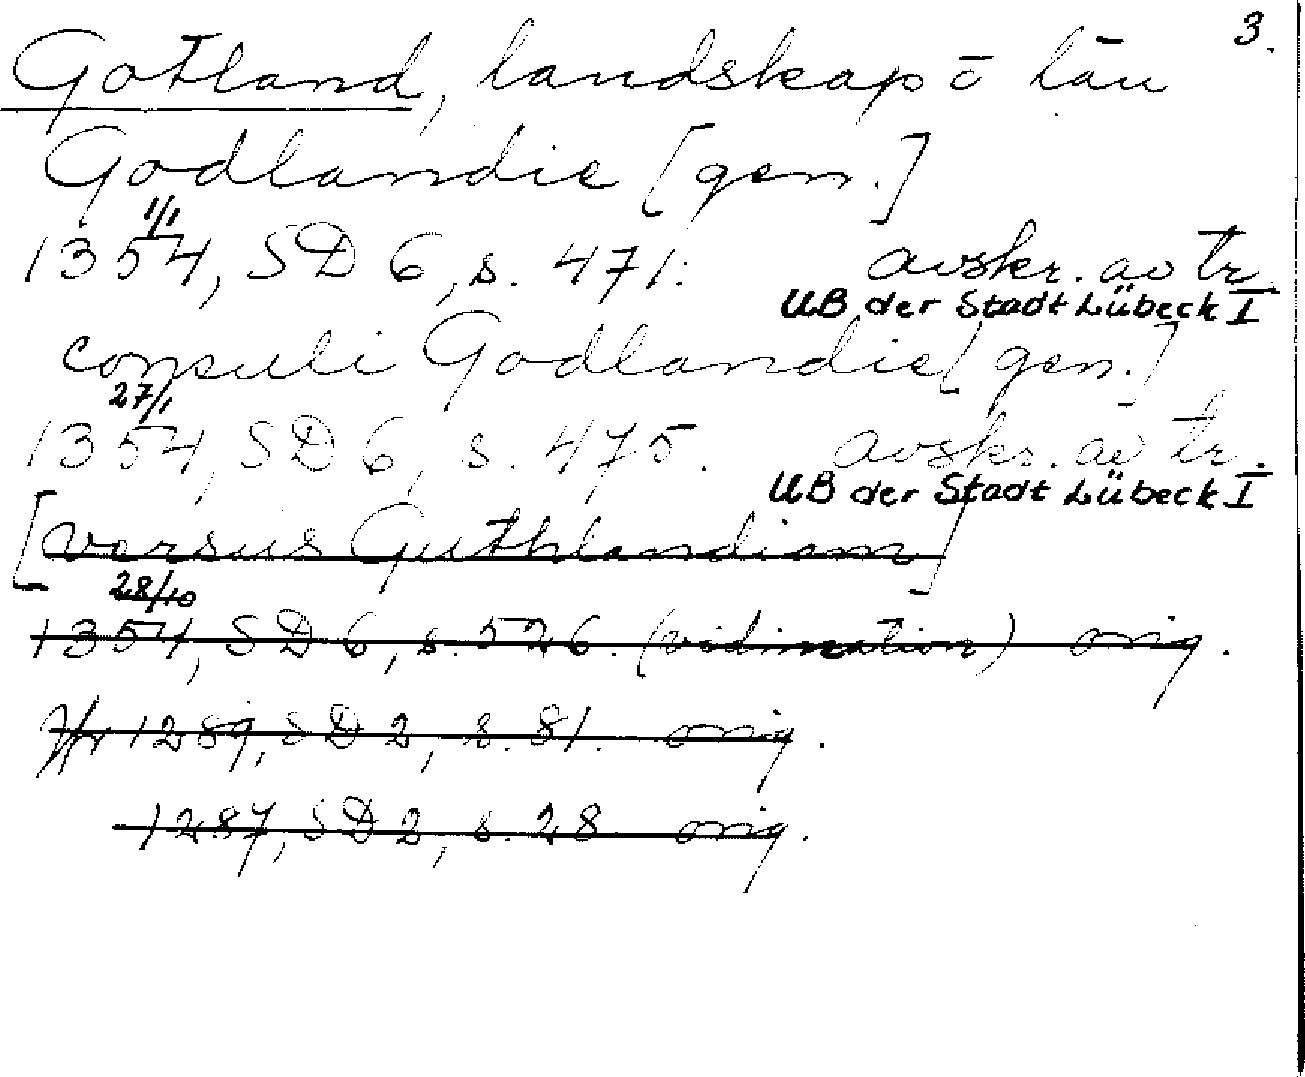 3.
Gotland, landskap o län
Godlandie [gen.]
1/1
1354, SD 6, s. 471. avskr. av tr.
UB der Stadt Lübeck I
consuli Godlandie [gen.]
27/1
1354, SD 6, s. 475. avskr. av tr.
UB der Stadt Lübeck I
[versus Guthlandiam]
28/10
1354, SD 6, s. 526. (vidimation) orig.
Jfr 1289, SD 2, s. 81. orig.
1287, SD 2, s. 28 orig.